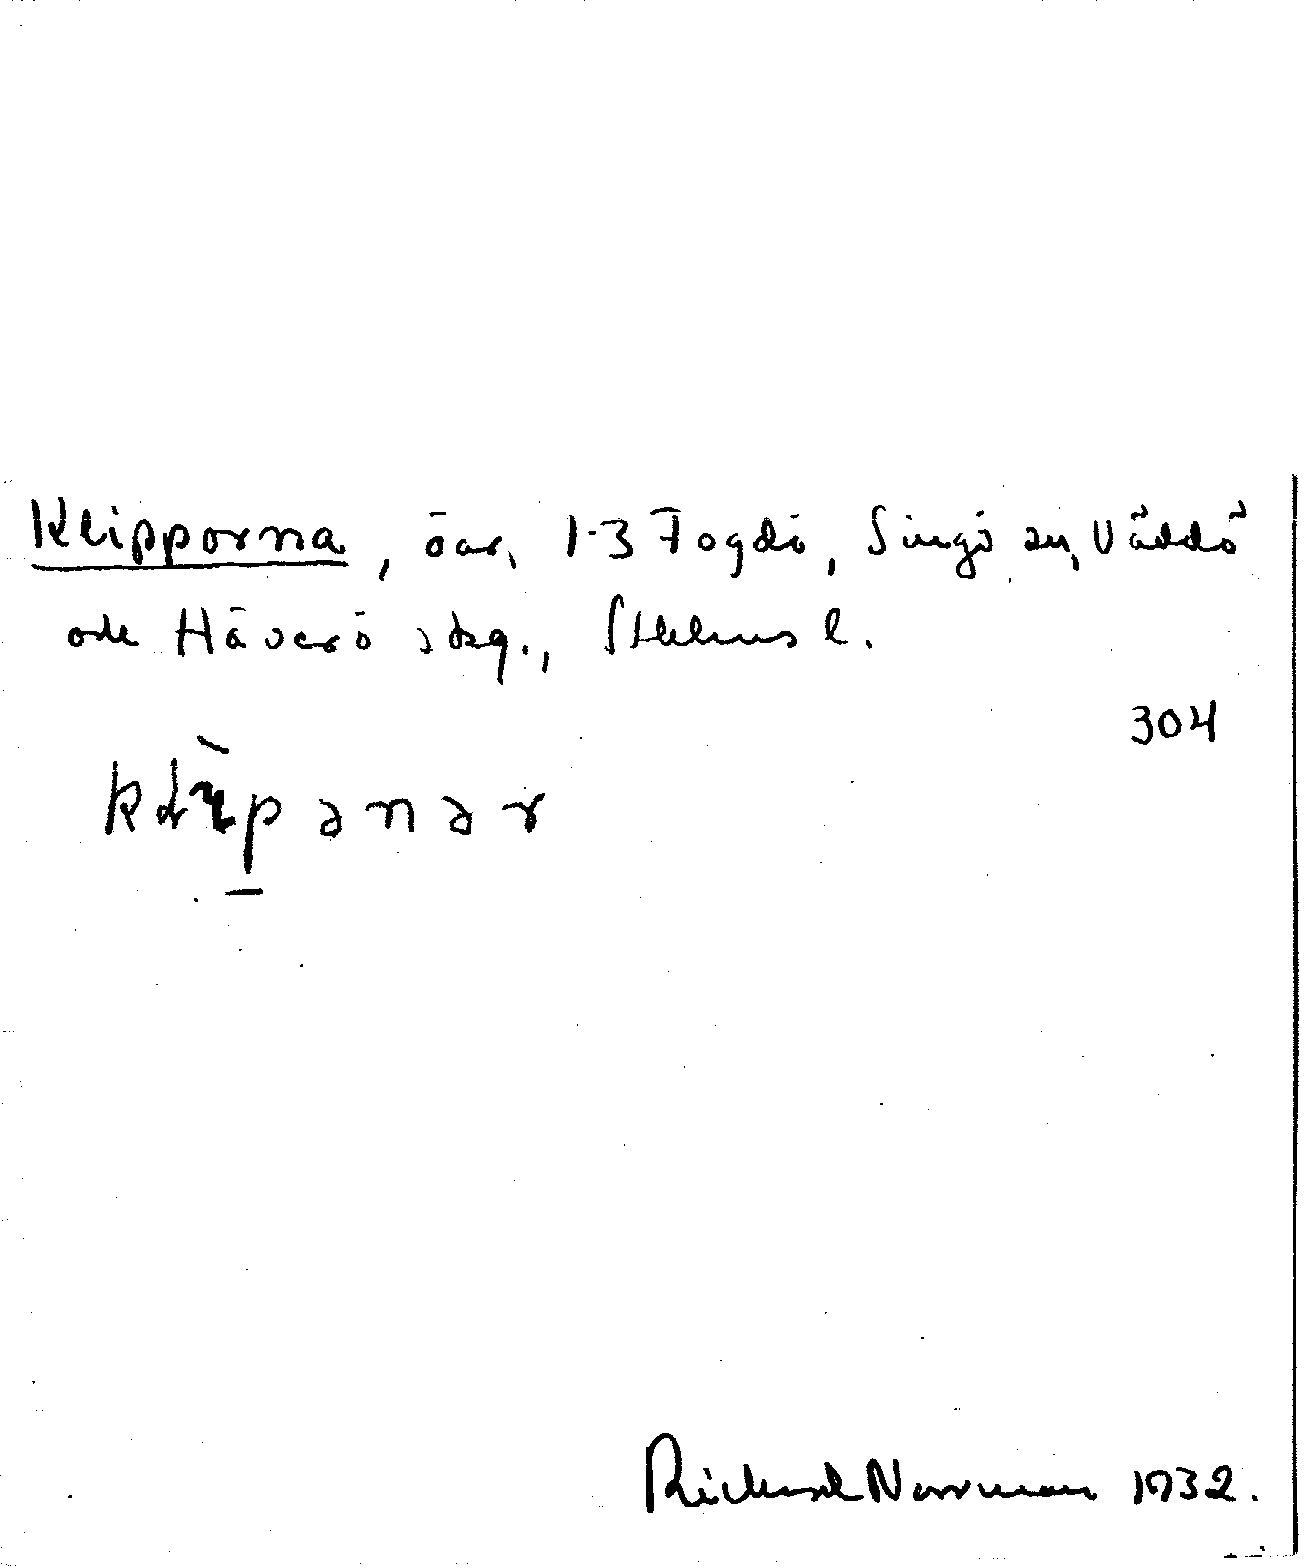 Klipporna, öar, 1-3 Fogdö, Singö sn, Väddö
och Häverö skg., Sthlms l.
304
klı̀pənər
Richard Norrman 1932.